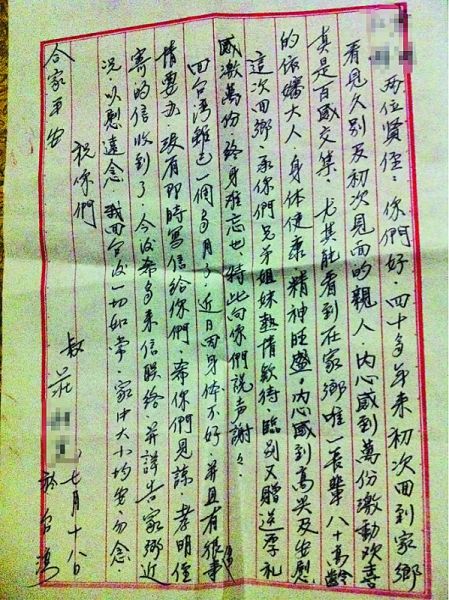 两位賢侄：你們好．四十多年來初次回到家鄉
看見久別及初次見面的親人 內心感到萬份激動欢喜
真是百感交集．尤其能看到在家鄉唯一長輩八十高齡
的依嬸大人．身体健康精神旺盛．內心感到高兴及安慰
這次回鄉．承你們兄弟姐妹熱情欵待．臨別又贈送厚礼
感激萬份終身难忘也．特此向你們說声謝々．
回台湾雖已一個多月了．近日因身体不好．并且有很多事
情要办 没有即時寫信給你們．希你們見諒．孝明侄
寄的信收到了．今後希多来信联络．并詳告家鄉近
况．以慰遠念．我回台後一切如常．家中大小均安．勿念．
祝你們
合家平安
叔 莊
七月十八日
於台湾